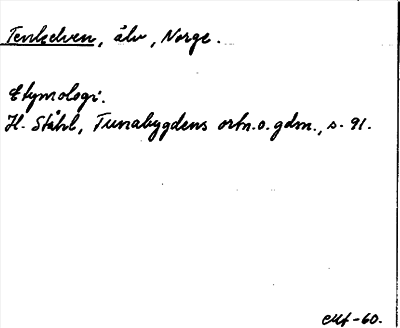 Tenkelven, älv, Norge.
Etymologi.
H. Ståhl, Tunabygdens ortn. o. gdm., s. 91.
-60.